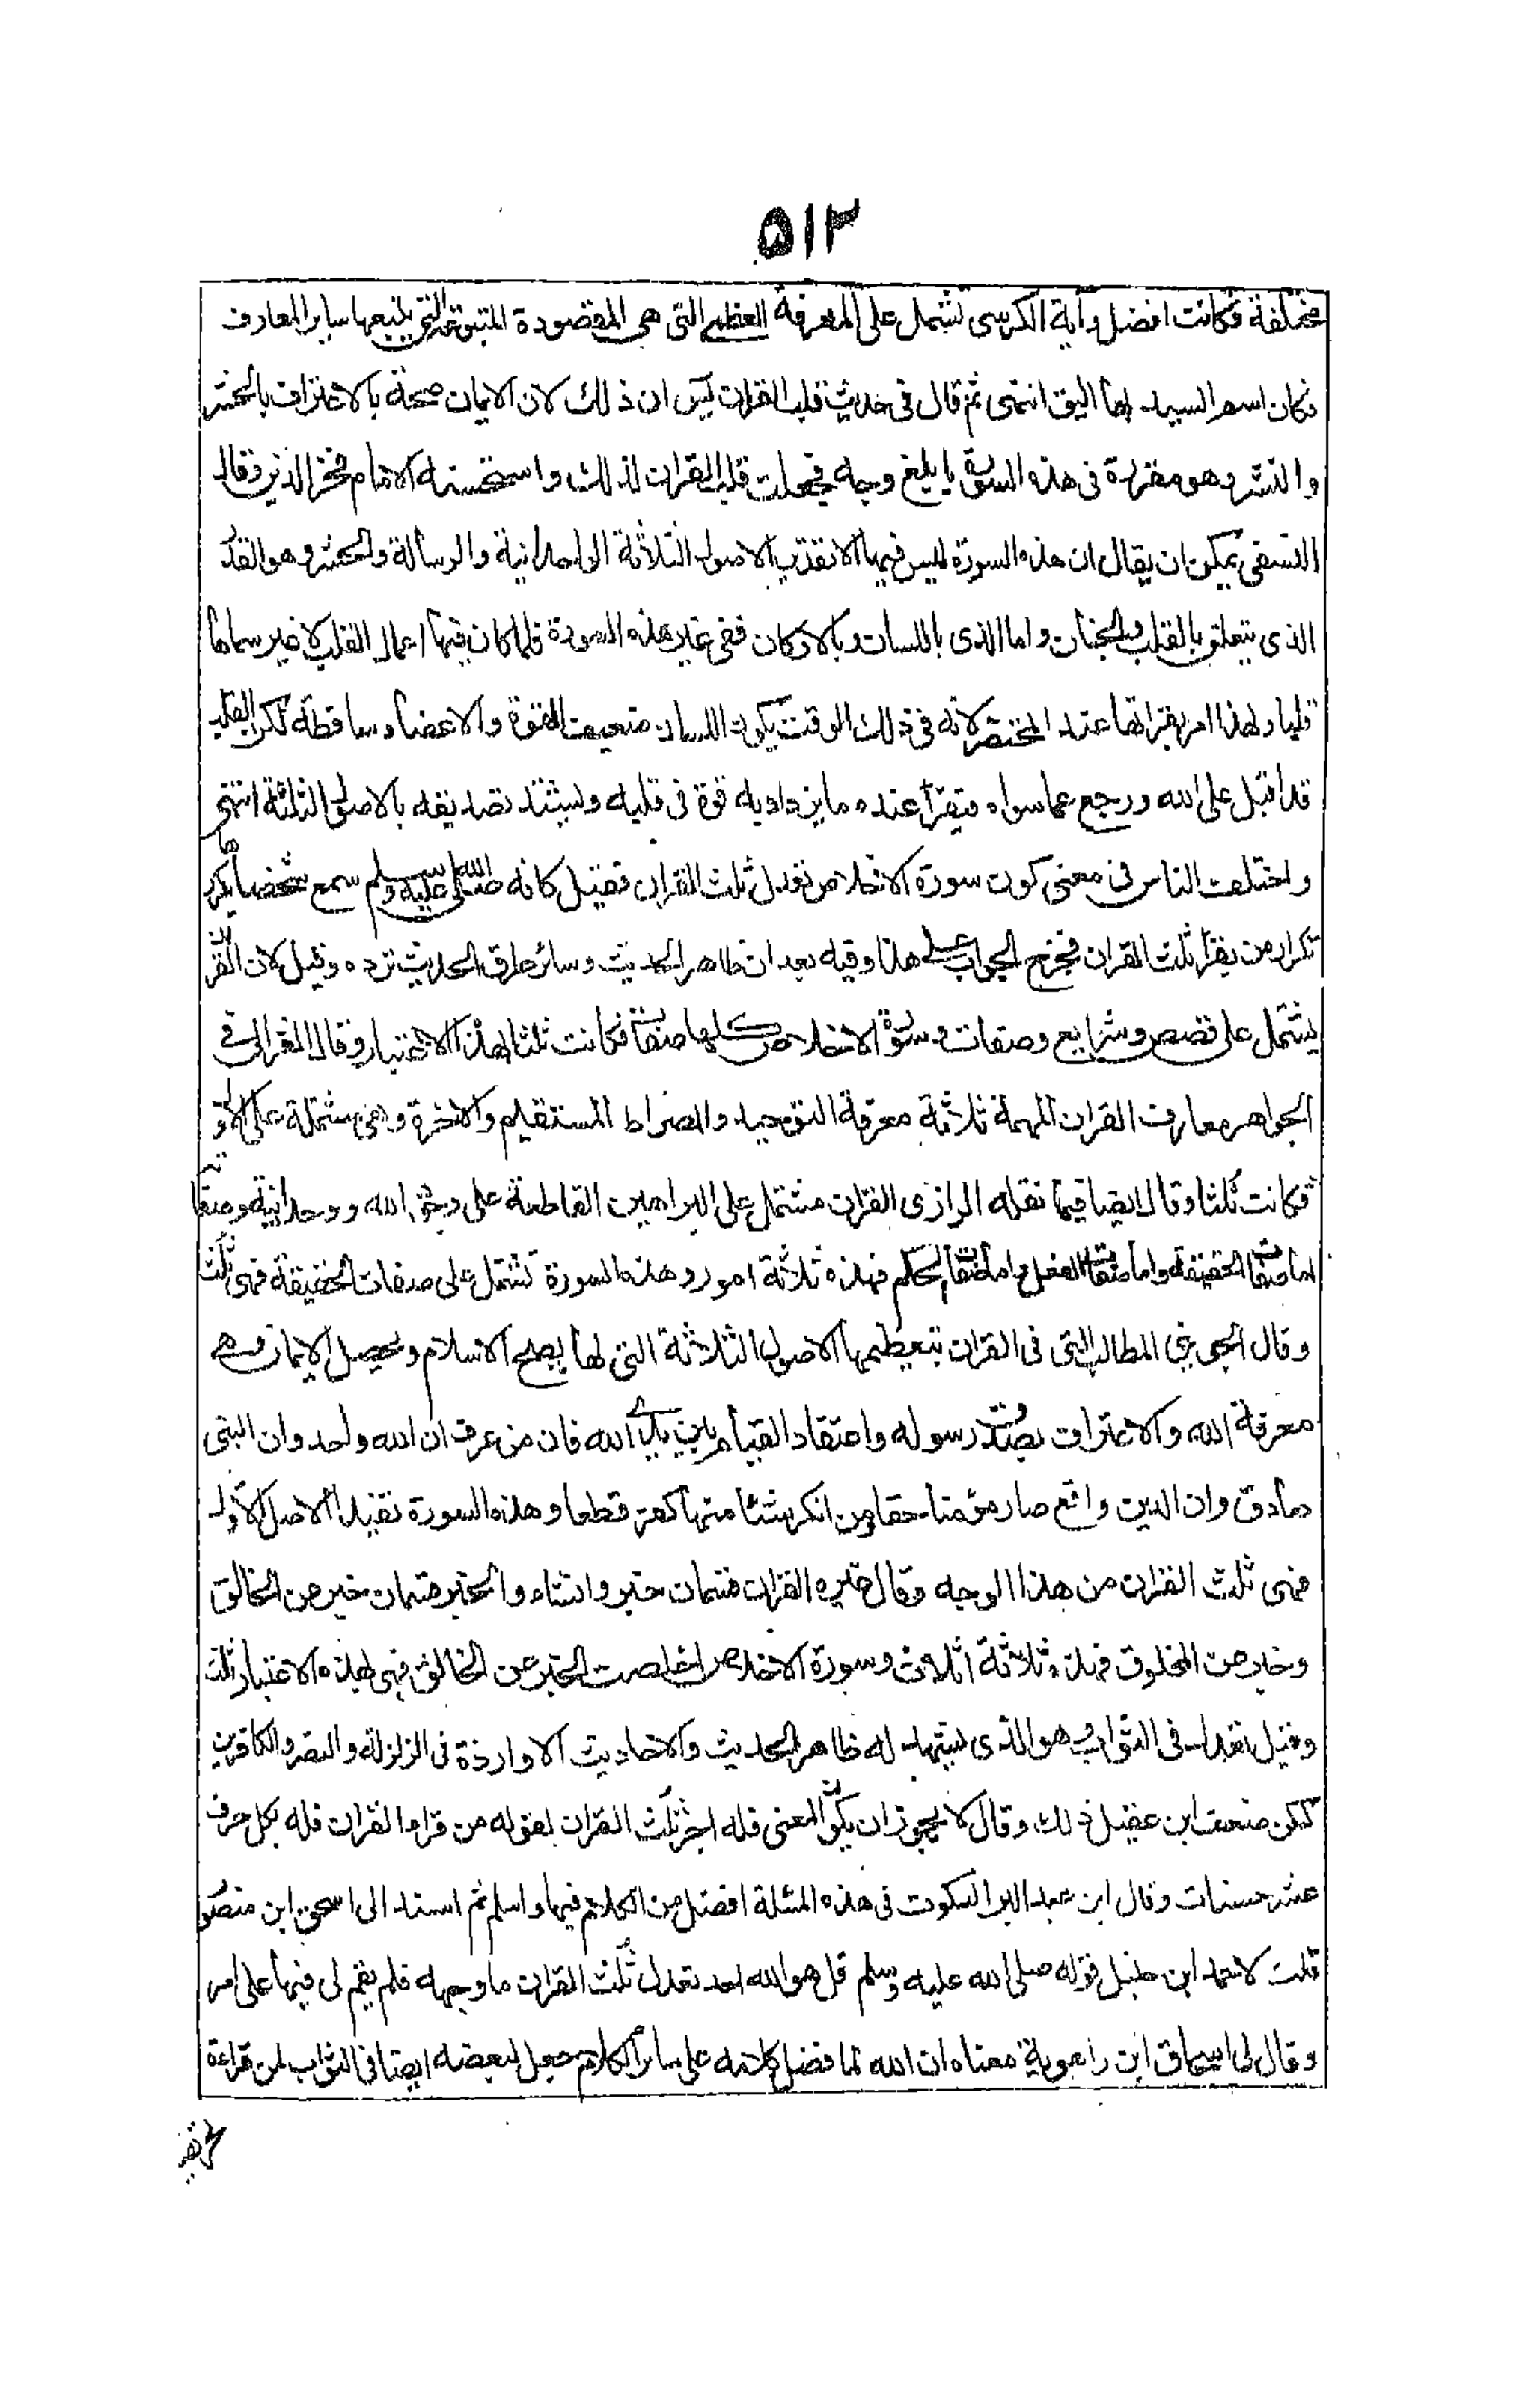 ٥١٢
مختلفة فكانت افضل وآية الكرسى تشمل على المعرفة العظمى التى هى المقصودة المتبوعة التى يتبعها ساير المعارف
فكان اسم السيد لها اليق انتهى ثم قال فى حديث قلب القران يس ان ذلك لان الايمان صحته بالاعتراف بالحشر
والنشر وهو مقررة فى هذه السورة بابلغ وجه فجعلت قلب القران لذلك واستحسنه الامام فخر الدين وقال
النسفى يمكن ان يقال ان هذه السورة ليس فيها الا تقرير الاصول الثلاثة الواحدانية والرسالة والحشر وهو القدر
الذى يتعلق بالقلب والجنان واما الذى باللسان وبالاركان ففى غير هذه السورة فلما كان فيها اعمال القلب لا غير سماها
قلبا ولهذا امر بقراتها عند المحتضر لانه فى ذلك الوقت يكون اللسان ضعيف القوة والاعضاء ساقطة لكن القلب
قد اقبل على الله ورجع عما سواه فيقرأ عنده ما يزداد به قوة فى قلبه ويشتد تصديقه بالاصول الثلثة انتهى
واختلف الناس فى معنى كون سورة الاخلاص تعدل ثلث القران فقيل كانه صلى الله عليه وسلم سمع شخصا يكررها
تكرار من يقرأ ثلث القران فخرج الجواب على هذا وفيه بعد ان ظاهر الحديث وسائر طرق الحديث ترده وقيل لان القران
يشتمل على قصص وشرايع وصفات وسورة الاخلاص كلها صفات فكانت ثلثا بهذا الاعتبار وقال الغزالى فى
الجواهر معارف القران المهمة ثلاثة معرفة التوحيد والصراط المستقيم والاخرة وهى مشتملة على الاول
فكانت ثلثا وقال ايضا فيما نقله الرازى القران مشتمل على البراهين القاطعة على وجود الله ووحدانيته وصفاته
اما صفات الحقيقة واما صفات الفعل واما صفات الحكم فهذه ثلاثة امور وهذه السورة تشتمل على صفات الحقيقة فهى ثلث
وقال الجوينى المطالب التى فى القران بتعظيمها الاصول الثلاثة التى لها يصلح الاسلام ويحصل الايمان وهى
معرفة الله والاعتراف بصدق رسوله واعتقاد القيام بين يدى الله فان من عرف ان الله واحد وان النبى
صادق وان الدين واقع صار مؤمنا حقا ومن انكر شئا منها كفر قطعا وهذه السورة تفيد الاصل الاول
فهى ثلث القران من هذا الوجه وقال غيره القران قسمان خبر وانشاء والخبر قسمان خبر عن الخالق
وخبر عن المخلوق فهذه ثلاثة اثلاث وسورة الاخلاص اخلصت الخبر عن الخالق فهى بهذه الاعتبار ثلث
وقيل تعدل فى الثواب وهو الذى يشهد له ظاهر الحديث والاحاديث الاواردة فى الزلزلة والنصر والكافرين
لكن ضعف ابن عقيل ذلك وقال لا يجوز ان يكون المعنى فله اجر ثلث القران لقوله من قرا القران فله بكل حرف
عشر حسنات وقال ابن عبد البر السكوت فى هذه المئلة افضل من الكلام فيها واسلم ثم اسند الى اسحق ابن منصور
قلت لاحمد ابن حنبل قوله صلى الله عليه وسلم قل هو الله احد تعدل ثلث القران ما وجهه فلم يقم لى فيها على امر
وقال لى اسحاق ابن راهوية معناه ان الله لما فضل كلامه على سائر الكلام جعل لبعضه ايضا فى الثواب لمن قراءة